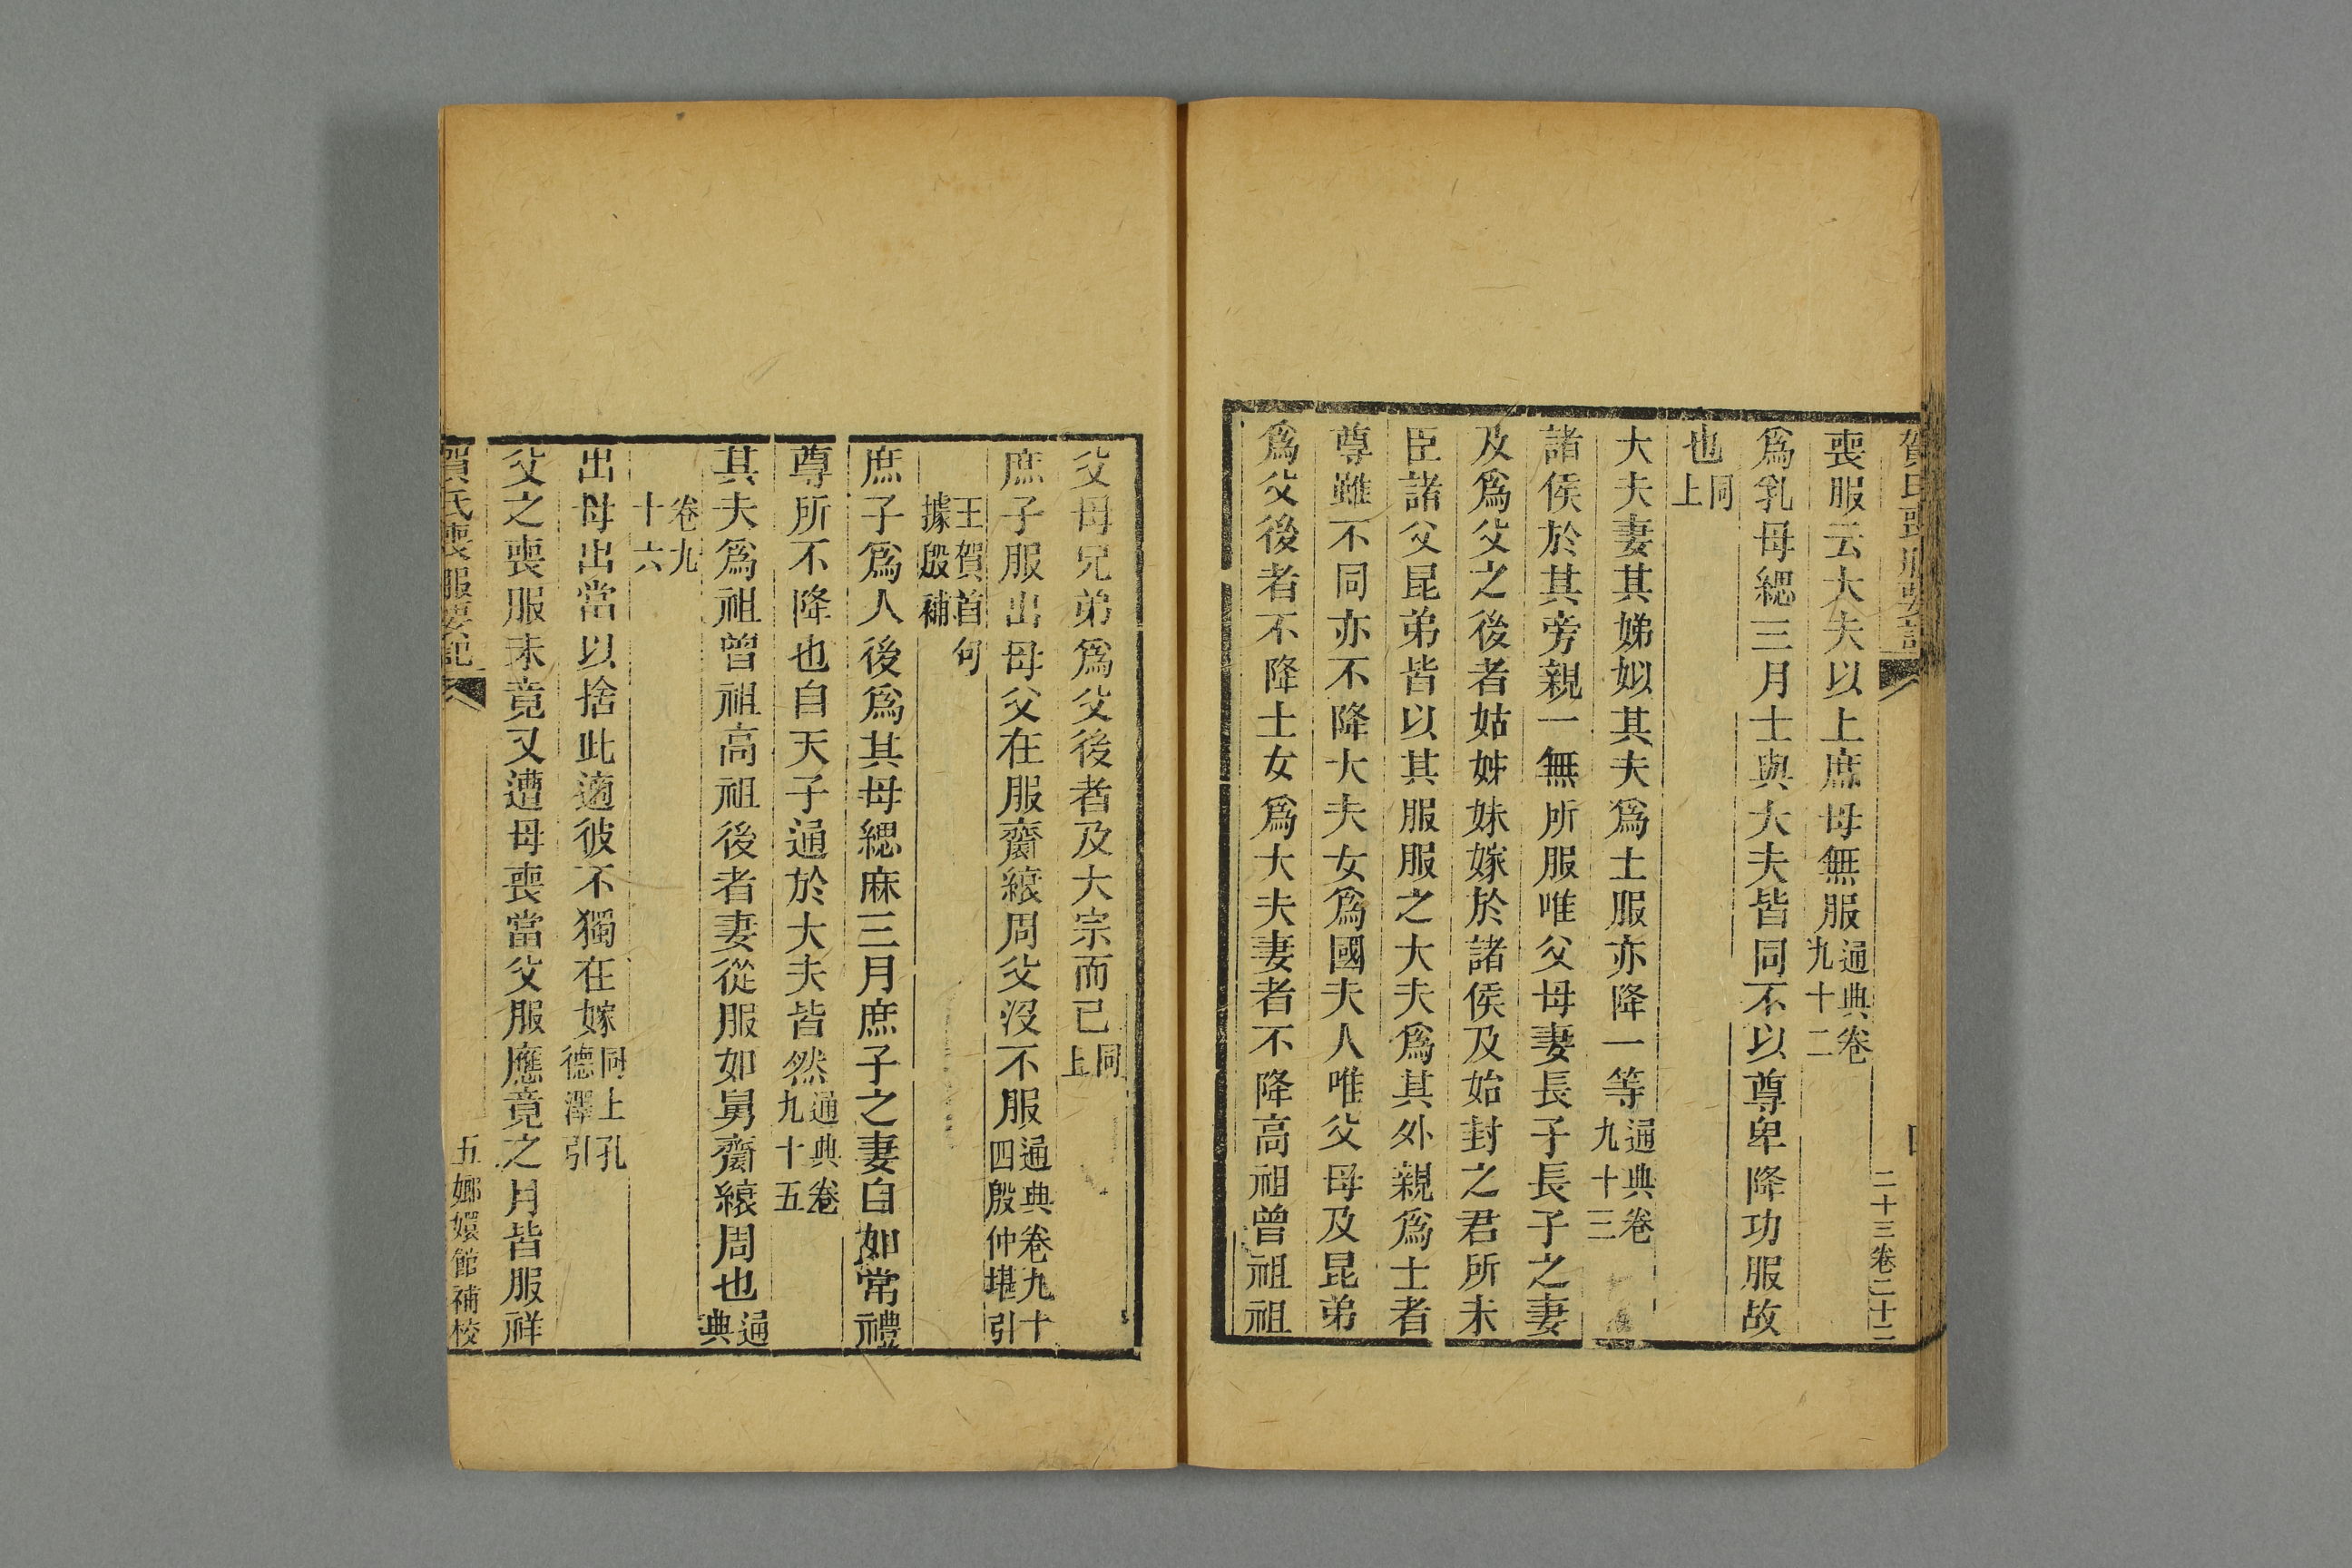 賀氏喪服要記
二十三卷二十二
喪服云大夫以上庶母無服通典卷九十二
爲乳母緦三月士與大夫皆同不以尊卑降功服故
也同上
大夫妻其娣姒其夫爲士服亦降一等通典卷九十三
諸侯於其旁親一無所服唯父母妻長子長子之妻
及爲父之後者姑姊妹嫁於諸侯及始封之君所未
臣諸父昆弟皆以其服服之大夫爲其外親爲士者
尊雖不同亦不降大夫女爲國夫人唯父母及昆弟
爲父後者不降士女爲大夫妻者不降高祖曾祖祖
父母兄弟爲父後者及大宗而已同上
庶子服出母父在服齋縗周父沒不服通典卷九十四殷仲堪引
王賀首何據殷補
庶子爲人後爲其母緦麻三月庶子之妻自如常禮
尊所不降也自天子通於大夫皆然通典卷九十五
其夫爲祖曾祖高祖後者妻從服如舅齋縗周也通典
卷九十六
出母出當以捨此適彼不獨在嫁同上孔德澤引
父之喪服未竟又遭母喪當父服應竟之月皆服祥
賀氏喪服要記
五嫏嬛館補校